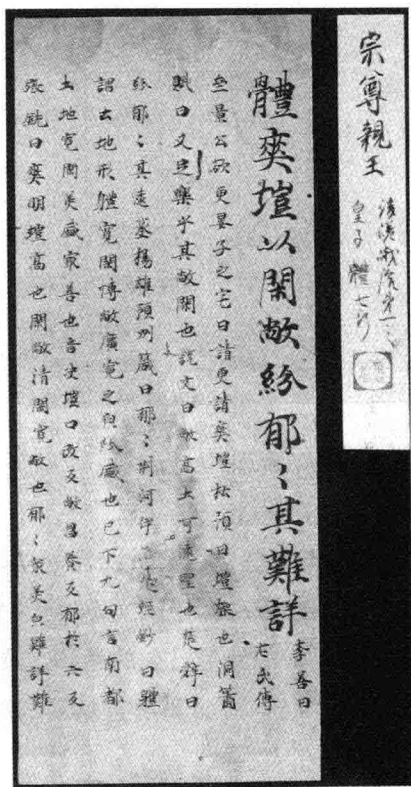 宗尊親王
後嵯峨院第一
皇子 體七行
體爽塏以閑敞紛郁〻其難詳
李善曰
左氏傳
齊景公欲更晏子之宅曰請更諸爽塏杜預曰塏燥也洞簫
賦曰又足樂乎其敞閑也說文曰敞高土可遠望也楚辭曰
紛郁〻其遠蒸揚雄預州箴曰郁〻荆河伊 是經 曰體
謂土地形體寬閑博敞廣寬之皃紛盛也已下九句言南都
土地寬閑美盛最善也音決塏口改反敞昌發反郁於六反
張銑曰爽明塏高也閑敞清閑寬敞也郁〻氣美皃難詳難